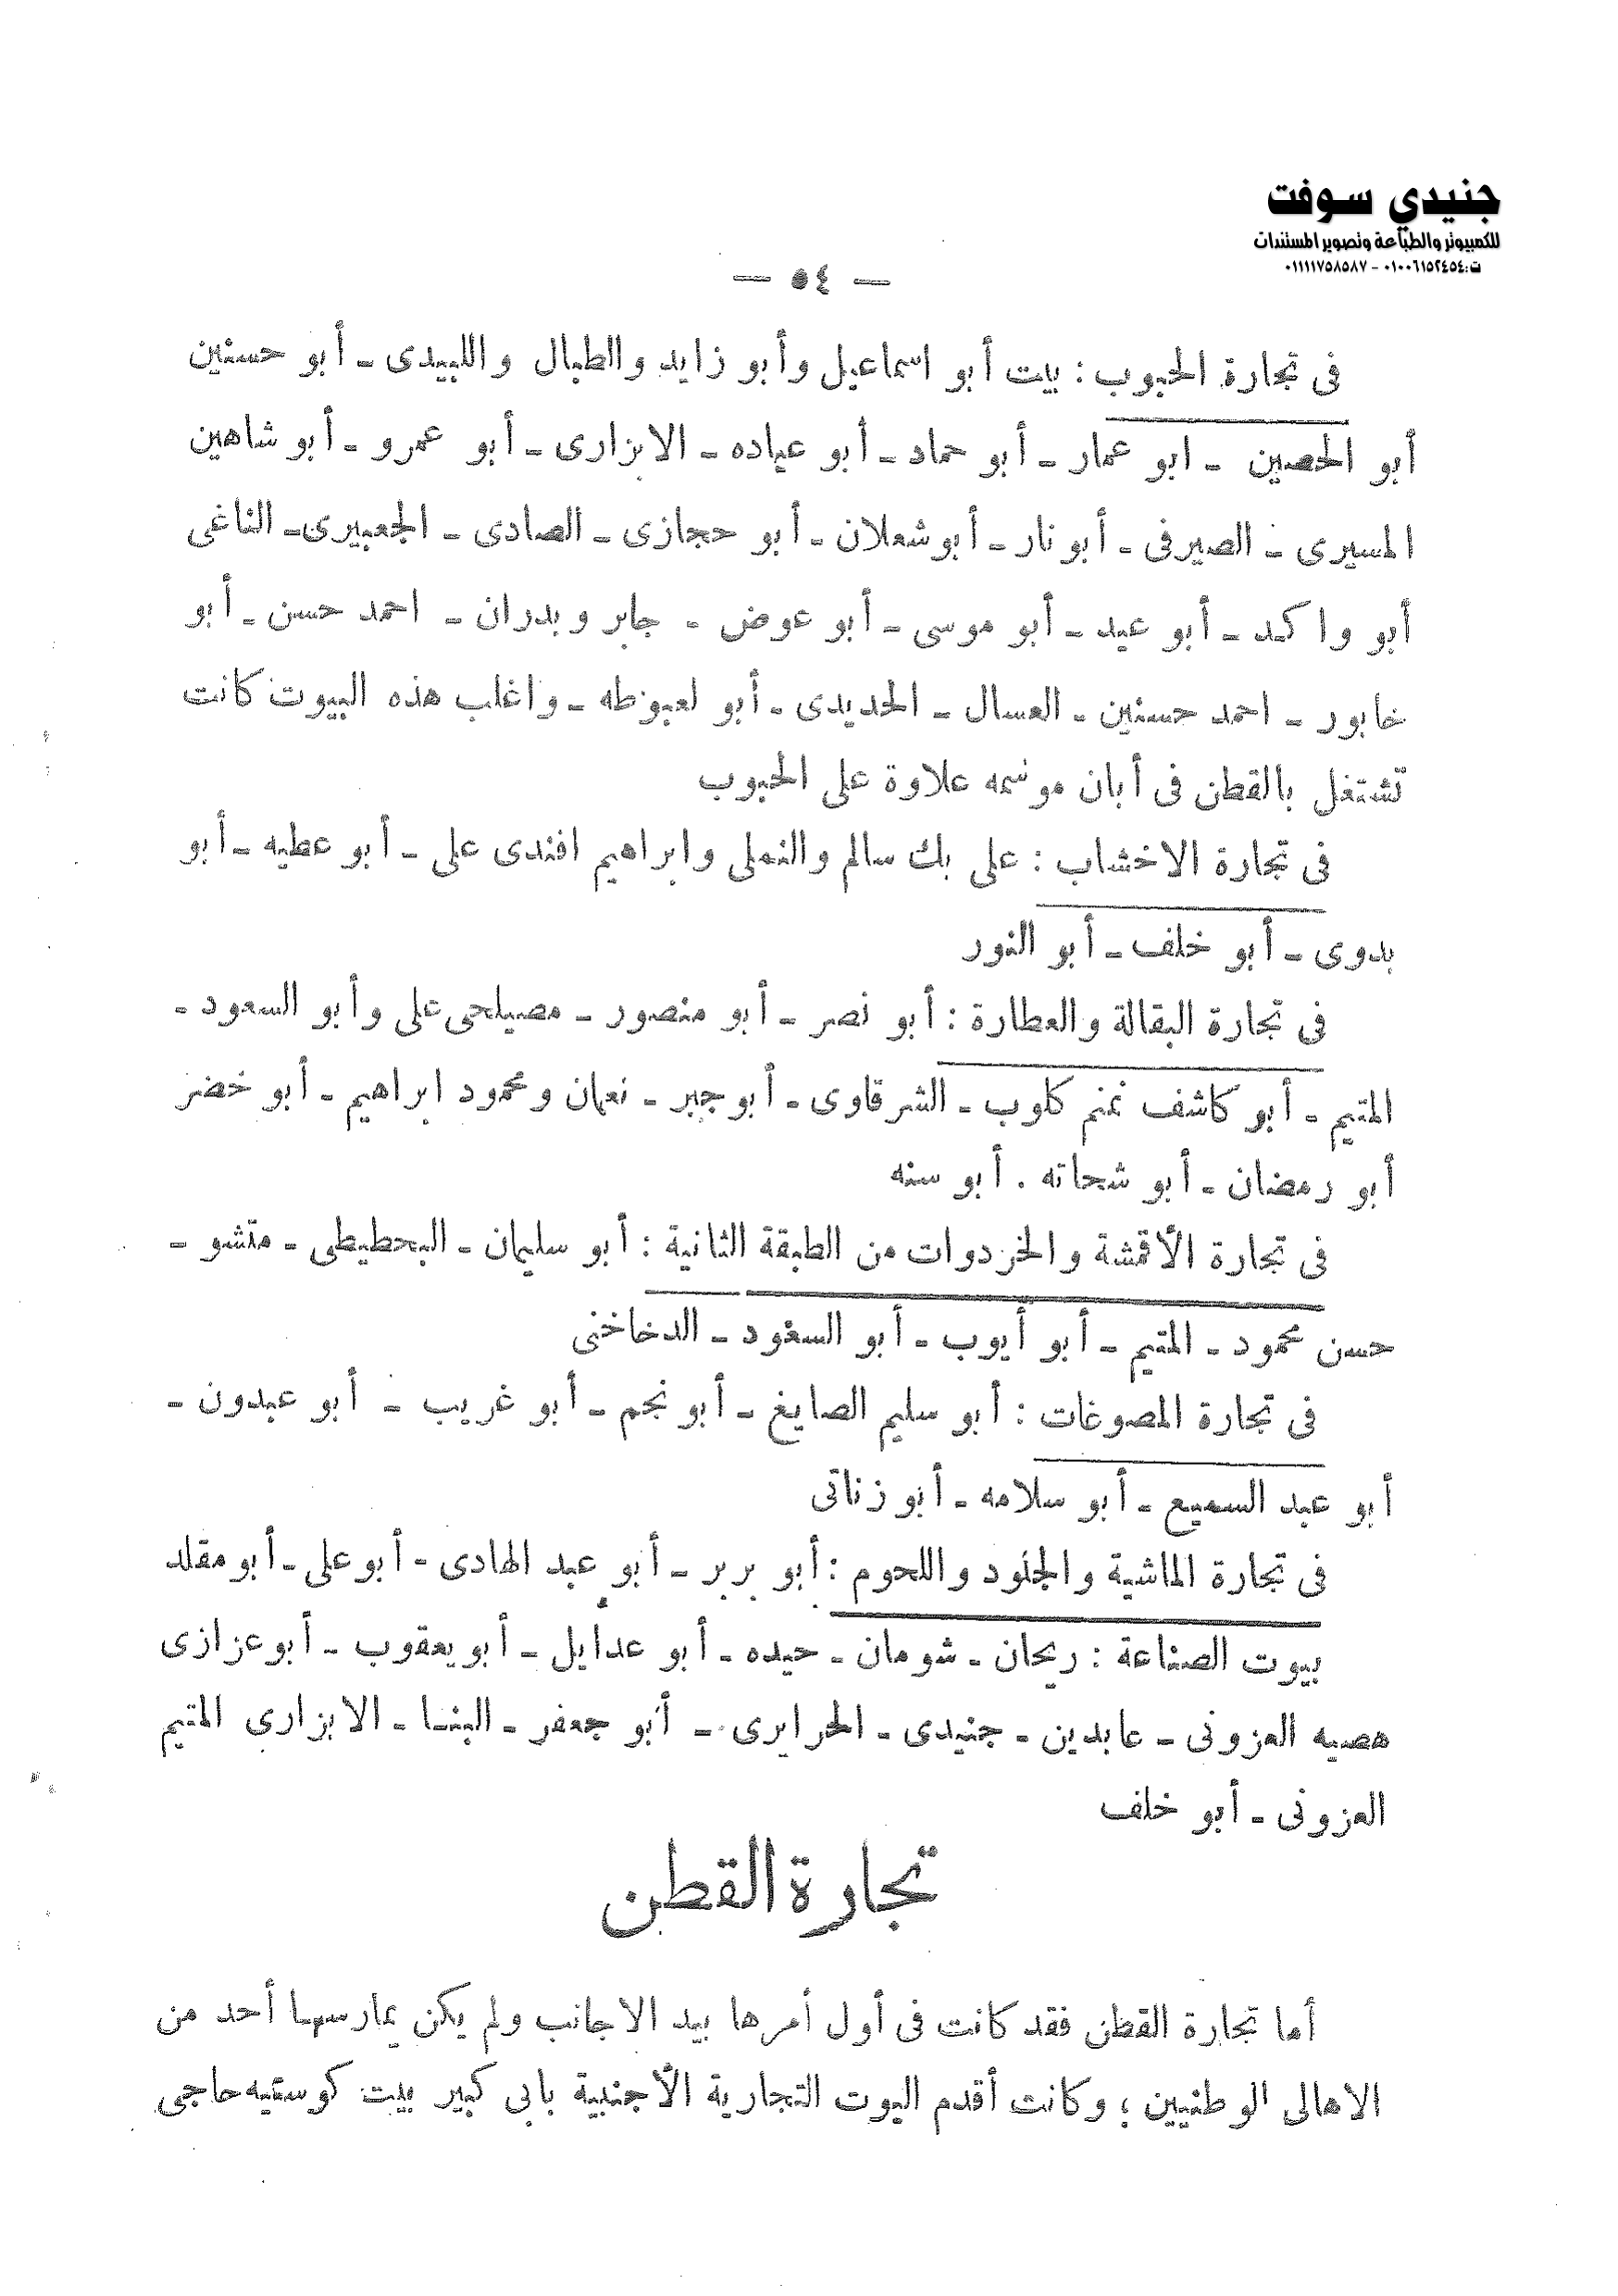 جنيدي سوفت
للكمبيوتر والطباعة وتصوير المستندات
ت:٠١٠٠٦١٥٢٤٥٤ - ٠١١١١٧٥٨٥٨٧
— ٥٤ —
فى تجارة الحبوب : بيت أبو اسماعيل وأبو زايد والطبال واللبيدى ـ أبو حسنين
أبو الحصين ـ ابو عمار ـ أبو حماد ـ أبو عياده ـ الابزارى ـ أبو عمرو ـ أبو شاهين
المسيرى ـ الصيرفى ـ أبو نار ـ أبو شعلان ـ أبو حجازى ـ الصادى ـ الجعبيرى ـ الناغى
أبو واكد ـ أبو عيد ـ أبو موسى ـ أبو عوض ـ جابر وبدران ـ احمد حسن ـ أبو
خابور ـ احمد حسنين ـ العسال ـ الحديدى ـ أبو لعبوطه ـ واغلب هذه البيوت كانت
تشتغل بالقطن فى أبان موسمه علاوة على الحبوب
فى تجارة الاخشاب : على بك سالم والنملى وابراهيم افندى على ـ أبو عطيه ـ أبو
بدوى ـ أبو خلف ـ أبو النور
فى تجارة البقالة والعطارة : أبو نصر ـ أبو منصور ـ مصيلحى على وأبو السعود ـ
المتيم ـ أبو كاشف غنم كلوب ـ الشرقاوى ـ أبو جبر ـ نعمان ومحمود ابراهيم ـ أبو خضر
أبو رمضان ـ أبو شحاته . أبو سنه
فى تجارة الأقمشة والخردوات من الطبقة الثانية : أبو سليمان ـ البحطيطى ـ متشو ـ
حسن محمود ـ المتيم ـ أبو أيوب ـ أبو السعود ـ الدخاخنى
فى تجارة المصوغات : أبو سليم الصايغ ـ أبو نجم ـ أبو غريب ـ أبو عبدون ـ
أبو عبد السميع ـ أبو سلامه ـ أبو زناتى
فى تجارة الماشية والجلود واللحوم : أبو بربر ـ أبو عبد الهادى ـ أبو على ـ أبو مقلد
بيوت الصناعة : ريحان ـ شومان ـ حيده ـ أبو عدايل ـ أبو يعقوب ـ أبو عزازى
هصيه العزونى ـ عابدين ـ جنيدى ـ الحرايرى ـ أبو جعفر ـ البنا ـ الابزارى المتيم
العزونى ـ أبو خلف
تجارة القطن
أما تجارة القطن فقد كانت فى أول أمرها بيد الاجانب ولم يكن يمارسها أحد من
الاهالى الوطنيين ؛ وكانت أقدم اليوت التجارية الأجنبية بابى كبير بيت كوستيه حاجى